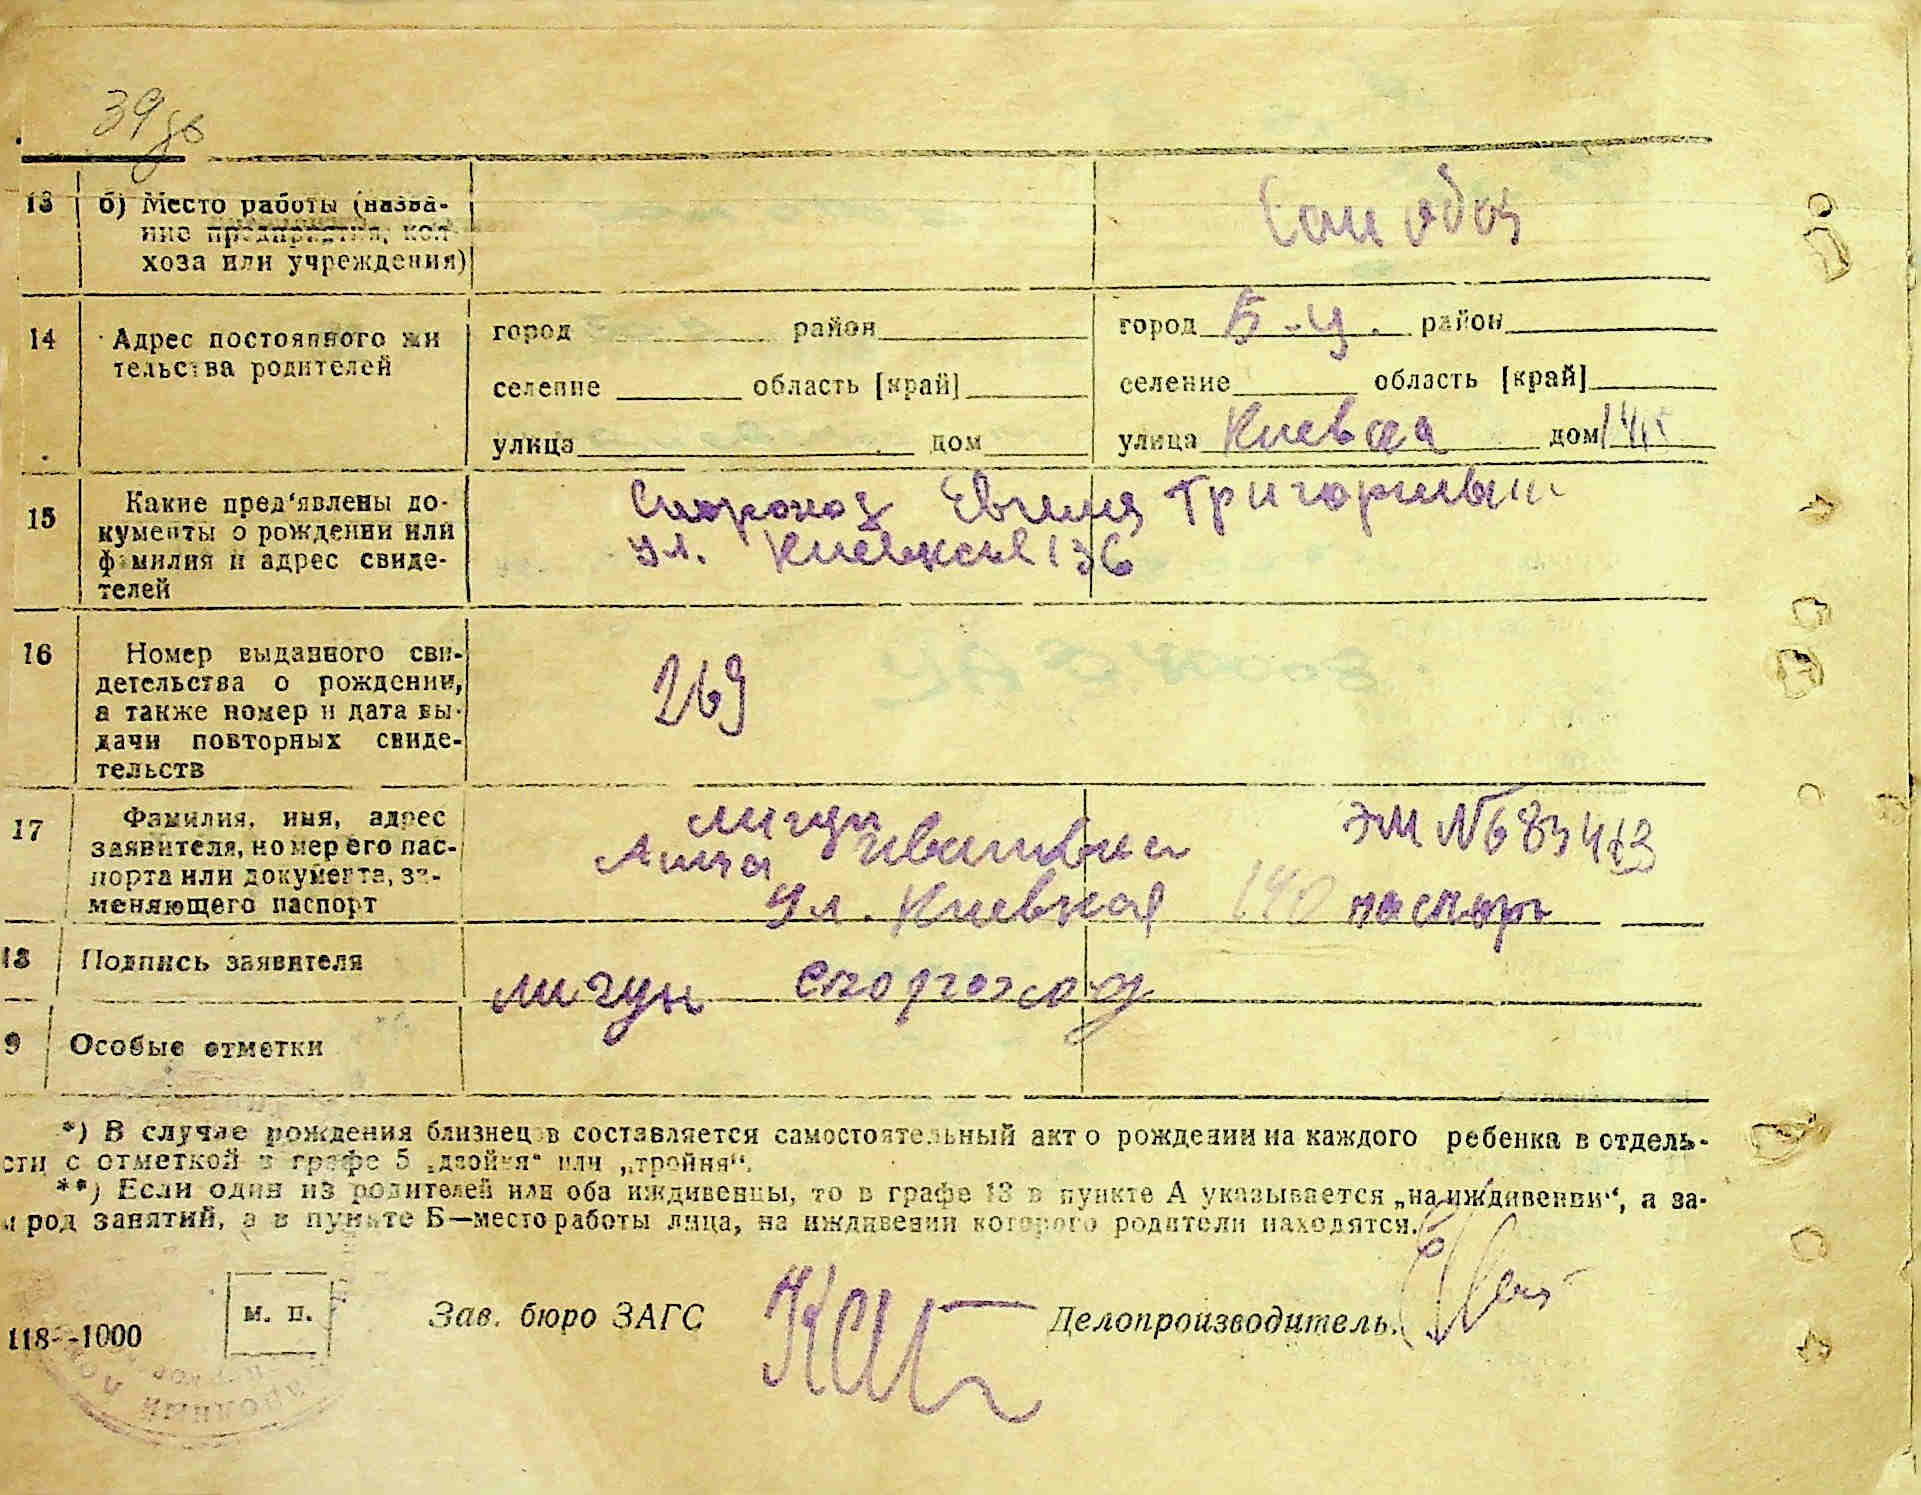 39
13 б) Место работы (назва-
ние предприятия, кол-
хоза или учреждения)
14 Адрес постоянного жи
тельства родителей
город район
селение область [край]
улица дом
город Б-Ц. район
селение область [край]
улица Киевская дом
15 Какие пред‘явлены до-
кументы о рождении или
фамилия и адрес свиде-
телей
Скороход Евгения Григорьевна
ул. Киевская 136
16 Номер выданного сви-
детельства о рождении,
а также номер и дата вы-
дачи повторных свиде-
тельств
269
17 Фамилия, имя, адрес
заявителя, номер его пас-
порта или документа, за-
меняющего паспорт
Лигун
Анна Ивановна
ул. Киевская 140
ЭМ №
паспорт
18 Подпись заявителя
Лигун Скороход
9 Особые отметки
*) В случае рождения близнецов составляется самостоятельный акт о рождении на каждого ребенка в отдель-
сти с отметкой в графе 5 „двойня“ или „тройня“.
**) Если один из родителей или оба иждивенцы, то в графе 13 в пункте А указывается „на иждивении“, а за-
и род занятий, а в пункте Б—место работы лица, на иждивении которого родители находятся.
м. п.
Зав. бюро ЗАГС
Делопроизводитель.
118 -1000